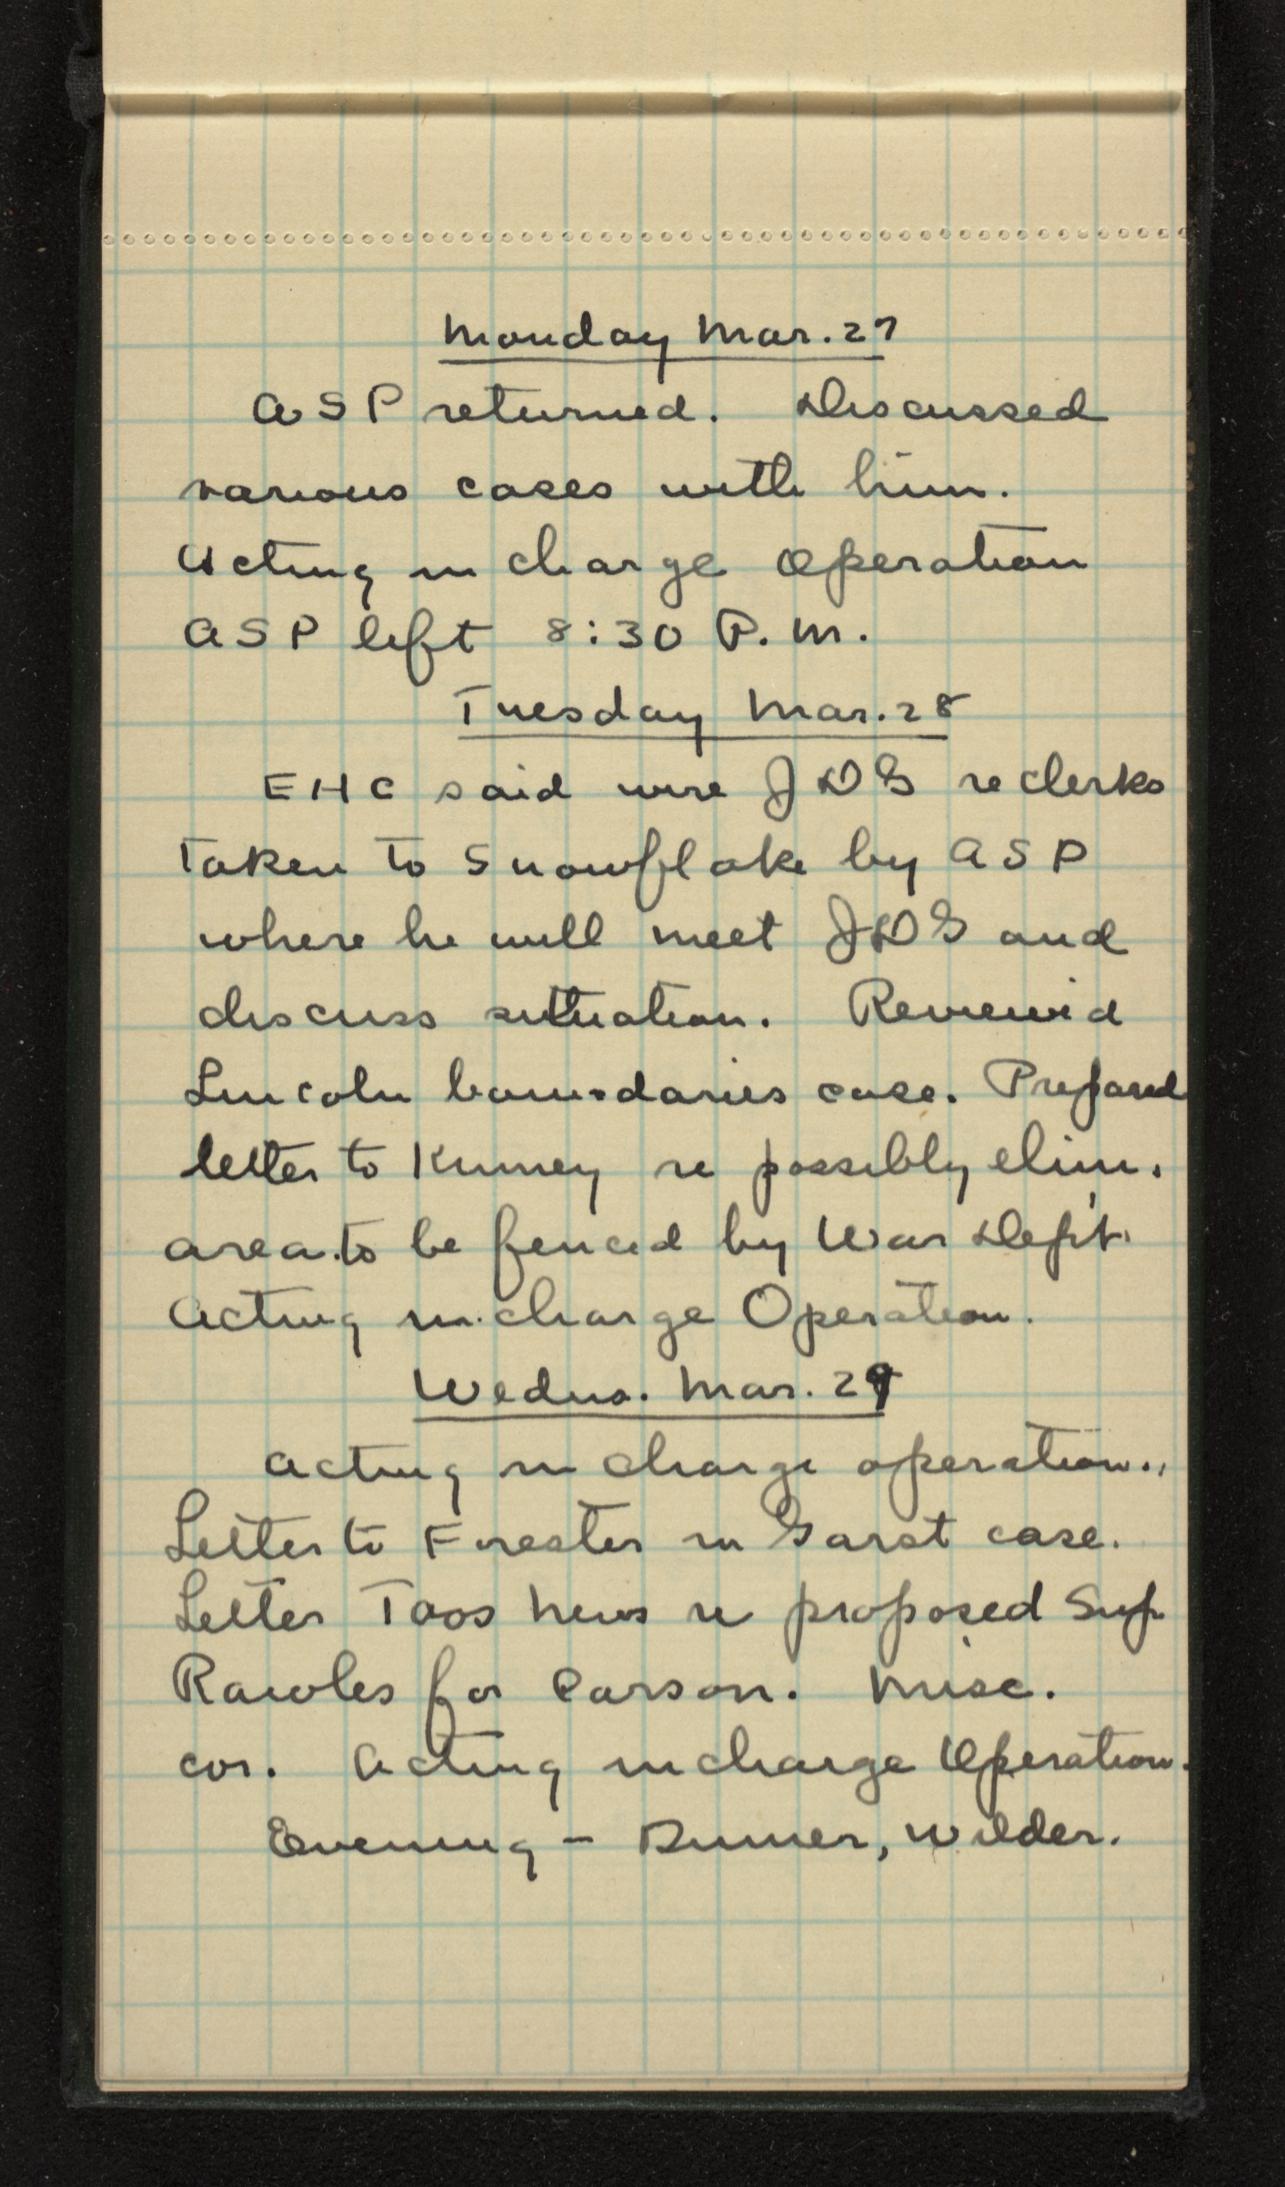 Monday Mar. 27
ASP returned. Discussed
various cases with him.
Acting in charge Operation
ASP left 8:30 P.M.
Tuesday Mar. 28
EHC said wire JDG re clerks
taken to Snowflake by ASP
where he will meet JDG and
discuss situation. Reviewed
Lincoln boundaries case. Prepared
letter to Kinney re possibly elim.
area to be fenced by War Dept.
Acting in charge Operation.
Wednes. Mar. 29
Acting in charge operation.
Letter to Forester in Garst case.
Letter Taos News re proposed Sup
Rawles for Carson. Misc.
cor. Acting in charge Operation.
Evening – Dinner, Wilder.